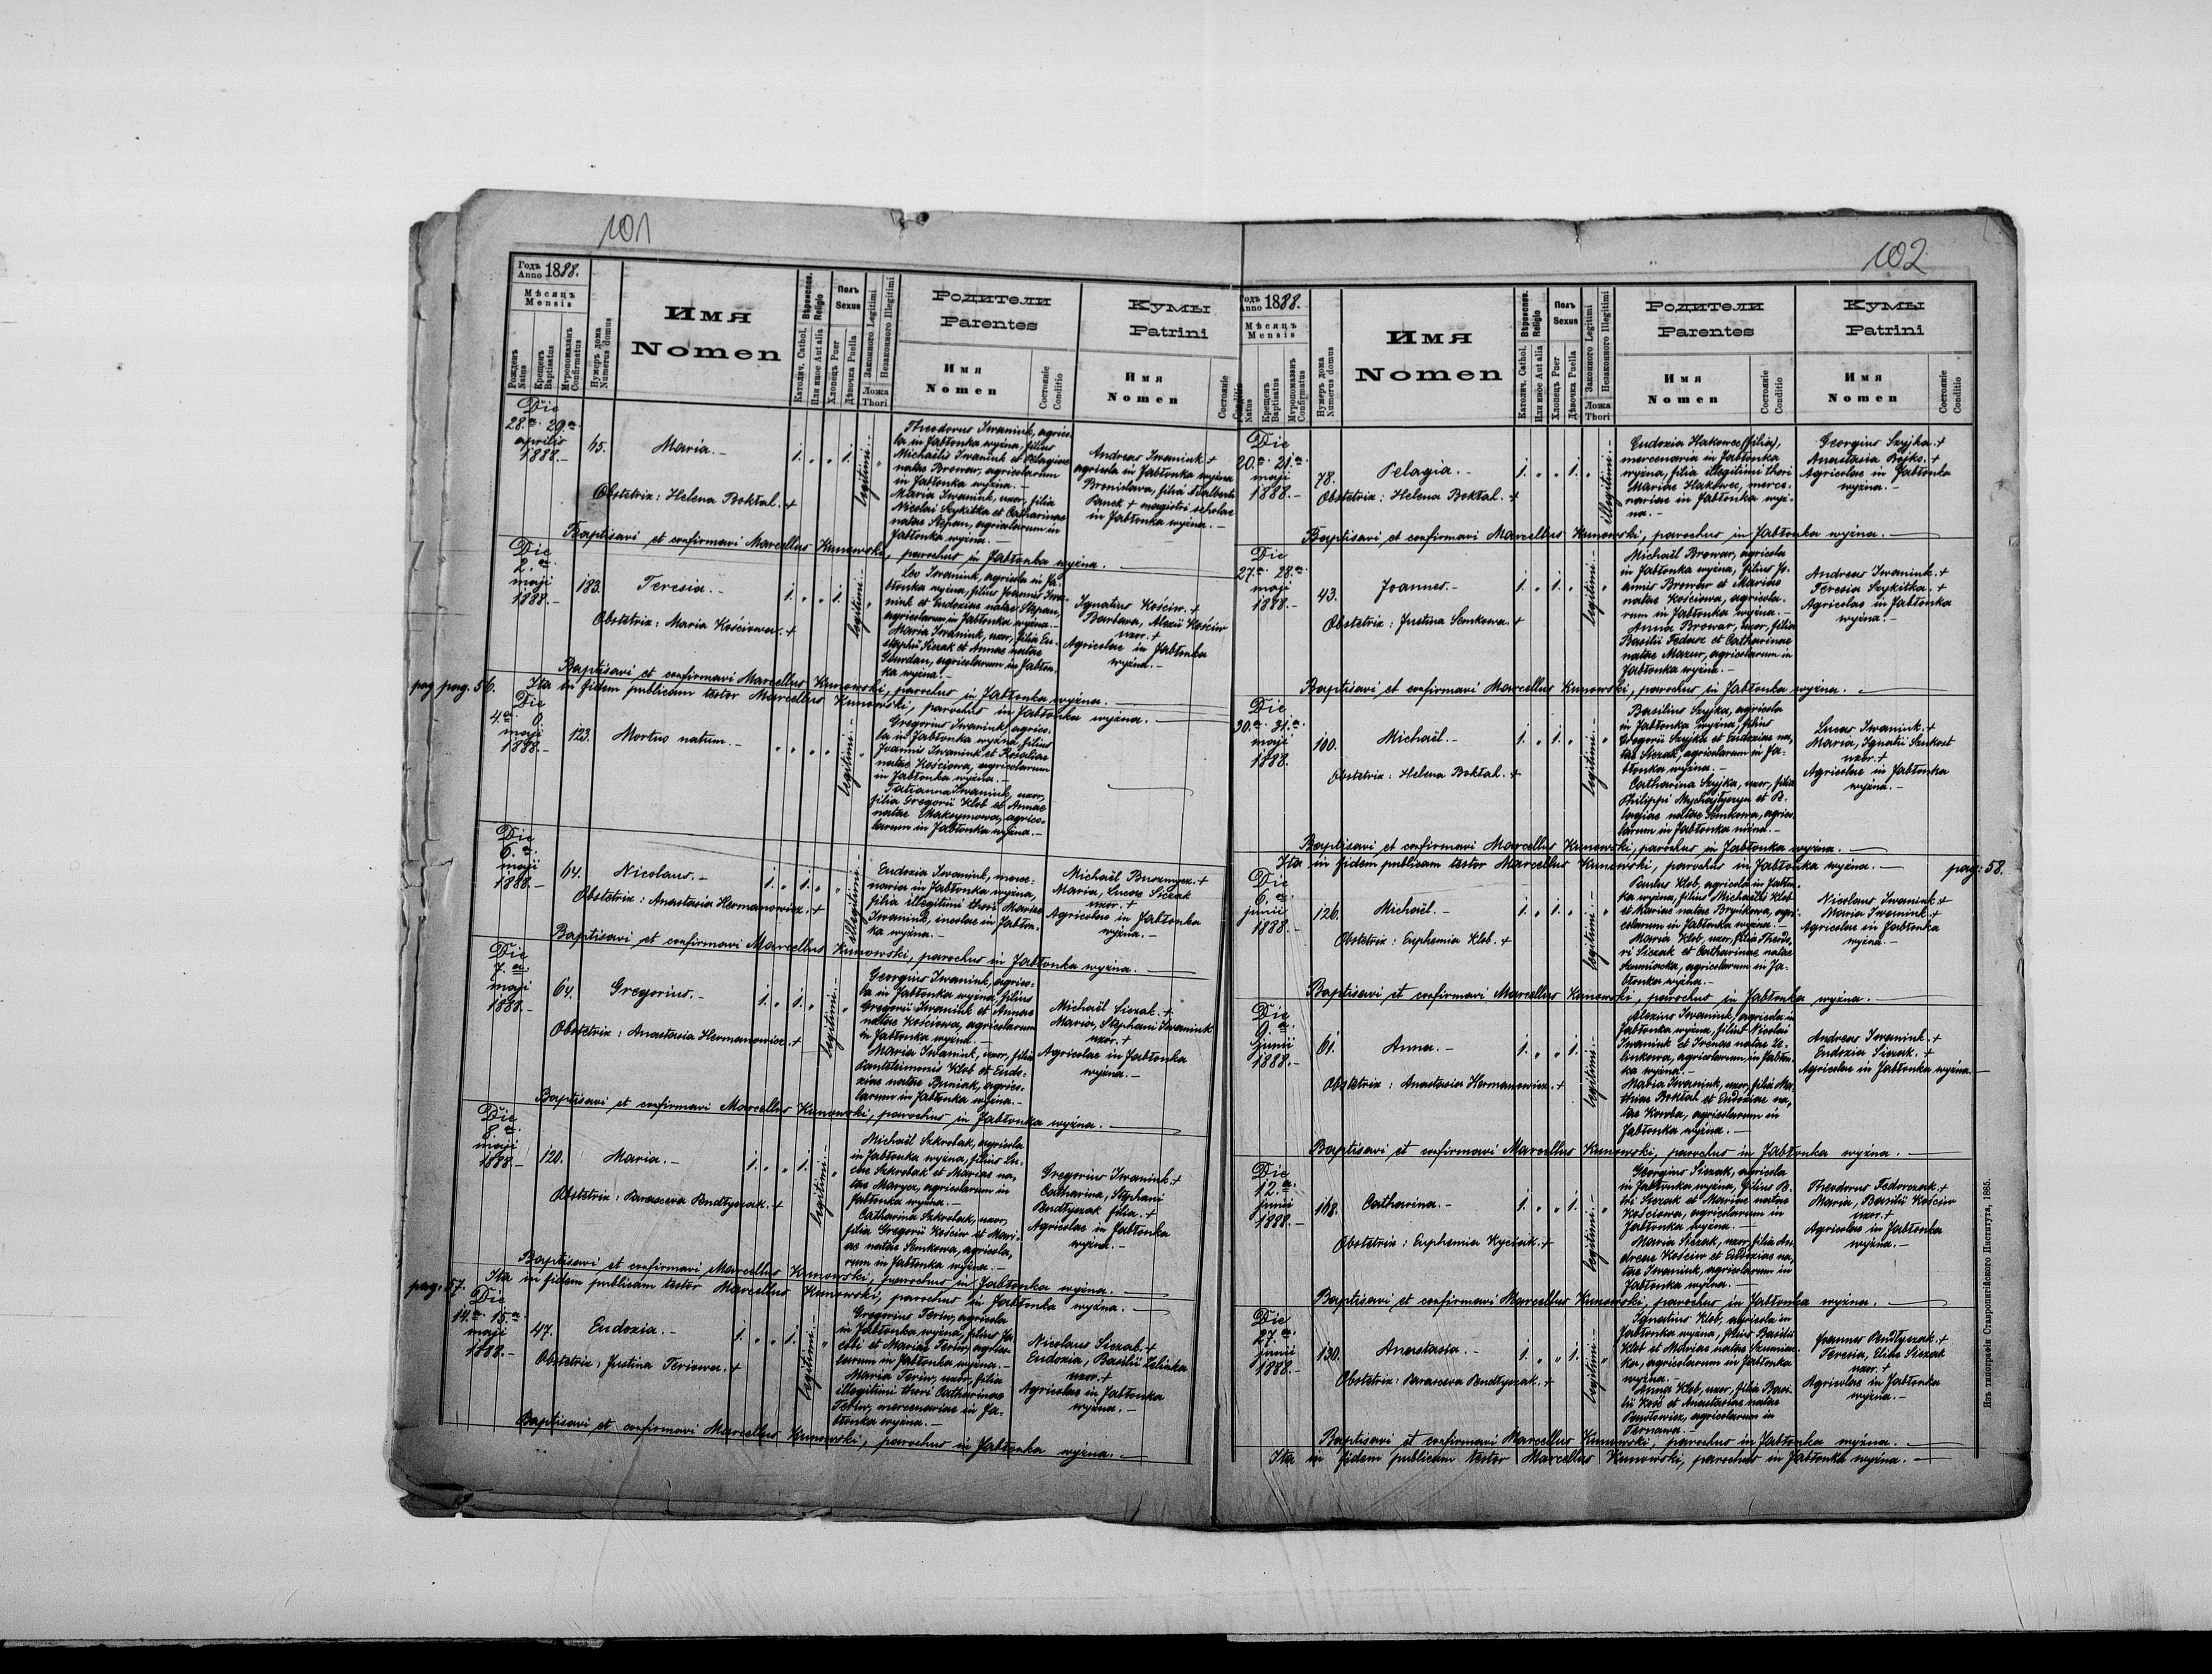 101
Годъ Anno 1888.
Мѣсяцъ Mensis
Рожденъ Natus
Крещенъ Baptisatus
Мѵропомазанъ Confirmatus
Нумеръ дома Numerus domus
Имя
Nomen
Вѣроиспов. Religio
Католич. Cathol.
Или иное Aut alia
Полъ Sexus
Хлопецъ Puer
Дѣвочка Puella
Законного Legitimi
Незаконного Illegitimi
Ложа Thori
Родители
Parentes
Имя
Nomen
Состояніе Conditio
Кумы
Patrini
Имя
Nomen
Состояніе Conditio
Die
28.a 29.a
aprilis
1888.-
65.
Maria.-
1. „ „ 1.
legitimi.-
Obstetrix: Helena Boktal.+
Theodorus Iwaniuk, agrico-
la in Jabłonka wyżna, filius
Michaëlis Iwaniuk et Pelagiae
natae Browar, agricolarum
in Jabłonka wyżna.-
Maria Iwaniuk, uxor, filia
Nicolai Szykitka et Catharinae
natae Stepan, agricolarum in
Jabłonka wyżna.-
Andreas Iwaniuk +
agricola in Jabłonka wyżna
Bronislava, filia Adalberti
Panek + magistri scholae
in Jabłonka wyżna.-
Baptisavi et confirmavi Marcellus Kunowski, parochus in Jabłonka wyżna.
Die
2.a
maji
1888.-
183.
Teresia.-
1. „ „ 1.
legitimi.-
Obstetrix: Maria Kościowa.+
Leo Iwaniuk, agricola in Ja-
błonka wyżna, filius Joannis Iwa-
niuk et Eudoxiae natae Stepan,
agricolarum in Jabłonka wyżna.-
Maria Iwaniuk, uxor, filia Eu-
staphii Siczak et Annae natae
Gburdan, agricolarum in Jabłon-
ka wyżna.-
Ignatius Kościw.+
Barbara, Alexii Kościw
uxor.+
Agricolae in Jabłonka
wyżna.-
Baptisavi et confirmavi Marcellus Kunowski, parochus in Jabłonka wyżna.
pag pag. 56.
Ita in fidem publicam testor Marcellus Kunowski, parochus in Jabłonka wyżna.
Die
4.a 0.
maji
1888.-
123.
Mortus natum.-
legitimi.-
Gregorius Iwaniuk, agrico-
la in Jabłonka wyżna, filius
Joannis Iwaniuk et Rosaliae
natae Kościowa, agricolarum
in Jabłonka wyżna.-
Tatianna Iwaniuk, uxor,
filia Gregorii Klob et Annae
natae Maksymowa, agrico-
larum in Jabłonka wyżna.-
Die
6.a
maji
1888.-
64.
Nicolaus.-
1. „ 1. „
illegitimi.-
Obstetrix: Anastasia Hermanowicz.+
Eudoxia Iwaniuk, merce-
naria in Jabłonka wyżna,
filia illegitimi thori Mariae
Iwaniuk, incolae in Jabłon-
ka wyżna.-
Michaël Burzmycz.+
Maria, Lucae Siczak
uxor.+
Agricolae in Jabłonka
wyżna.-
Baptisavi et confirmavi Marcellus Kunowski, parochus in Jabłonka wyżna.
Die
7.a
maji
1888.-
64.
Gregorius.-
1. „ 1. „
legitimi.-
Obstetrix: Anastasia Hermanowicz.+
Georgius Iwaniuk, agrico-
la in Jabłonka wyżna, filius
Gregorii Iwaniuk et Annae
natae Kościowa, agricolarum
in Jabłonka wyżna.-
Maria Iwaniuk, uxor, filia
Panteleimonis Klob et Eudo-
xiae natae Buniak, agrico-
larum in Jabłonka wyżna.-
Michaël Siczak.+
Maria, Stephani Iwaniuk
uxor.+
Agricolae in Jabłonka
wyżna.-
Baptisavi et confirmavi Marcellus Kunowski, parochus in Jabłonka wyżna.
Die
8.a
maji
1888.-
120.
Maria.-
1. „ „ 1.
legitimi.-
Obstetrix: Parasceva Pendłyszak.+
Michaël Szkrobak, agricola
in Jabłonka wyżna, filius Lu-
cae Szkrobak et Mariae na-
tae Marycz, agricolarum in
Jabłonka wyżna.-
Catharina Szkrobak, uxor,
filia Gregorii Kościw et Mari-
ae natae Semkowa, agricola-
rum in Jabłonka wyżna.-
Gregorius Iwaniuk.+
Catharina, Stephani
Pendłyszak filia.+
Agricolae in Jabłonka
wyżna.-
Baptisavi et confirmavi Marcellus Kunowski, parochus in Jabłonka wyżna.
pag: 57.
Ita in fidem publicam testor Marcellus Kunowski, parochus in Jabłonka wyżna.
Die
14.a 15.a
maji
1888.-
47.
Eudoxia.-
1. „ „ 1.
legitimi.-
Obstetrix: Justina Feriowa.+
Gregorius Feriw, agricola
in Jabłonka wyżna, filius Ja-
cobi et Mariae Feriw, agrico-
larum in Jabłonka wyżna.-
Maria Feriw, uxor, filia
illegitimi thori Catharinae
Feriw, mercenariae in Ja-
błonka wyżna.-
Nicolaus Siczak.+
Eudoxia, Basilii Zelinka
uxor.+
Agricolae in Jabłonka
wyżna.-
Baptisavi et confirmavi Marcellus Kunowski, parochus in Jabłonka wyżna.
102
Годъ Anno 1888.
Мѣсяцъ Mensis
Natus
Крещенъ Baptisatus
Мѵропомазанъ Confirmatus
Нумеръ дома Numerus domus
Имя
Nomen
Вѣроиспов. Religio
Католич. Cathol.
Или иное Aut alia
Полъ Sexus
Хлопецъ Puer
Дѣвочка Puella
Законного Legitimi
Незаконного Illegitimi
Ложа Thori
Родители
Parentes
Имя
Nomen
Состояніе Conditio
Кумы
Patrini
Имя
Nomen
Состояніе Conditio
Die
20.a 21.a
maji
1888.-
78.
Pelagia.-
1. „ „ 1.
illegitimi.-
Obstetrix: Helena Boktal.+
Eudoxia Hakowec (filia),
mercenaria in Jabłonka
wyżna, filia illegitimi thori
Mariae Hakowec, merce-
nariae in Jabłonka wyż-
na.-
Georgius Szyjka.+
Anastasia Bojko.+
Agricolae in Jabłonka
wyżna.-
Baptisavi et confirmavi Marcellus Kunowski, parochus in Jabłonka wyżna.
Die
27.a 28.a
maji
1888.-
43.
Joannes.-
1. „ 1. „
legitimi.-
Obstetrix: Justina Semkowa.+
Michaël Browar, agricola
in Jabłonka wyżna, filius Jo-
annis Browar et Mariae
natae Kościowa, agricola-
rum in Jabłonka wyżna.-
Anna Browar, uxor, filia
Basilii Fedasz et Catharinae
natae Mazur, agricolarum in
Jabłonka wyżna.-
Andreas Iwaniuk.+
Teresia Szykitka.+
Agricolae in Jabłonka
wyżna.-
Baptisavi et confirmavi Marcellus Kunowski, parochus in Jabłonka wyżna.
Die
30.a 31.a
maji
1888.
100.
Michaël.-
1. „ 1. „
legitimi.-
Obstetrix: Helena Boktal.+
Basilius Szyjka, agricola
in Jabłonka wyżna, filius
Gregorii Szyjka et Eudoxiae na-
tae Siczak, agricolarum in Ja-
błonka wyżna.-
Catharina Szyjka, uxor, filia
Philippi Mychajłyszyn et Pe-
lagiae natae Semkowa, agrico-
larum in Jabłonka niżna.-
Lucas Iwaniuk.+
Maria, Ignatii Szukost
uxor.+
Agricolae in Jabłonka
wyżna.-
Baptisavi et confirmavi Marcellus Kunowski, parochus in Jabłonka wyżna.
Ita in fidem publicam testor Marcellus Kunowski, parochus in Jabłonka wyżna.
pag: 58.
Die
6.a
junii
1888.-
126.
Michaël.-
1. „ 1. „
legitimi.-
Obstetrix: Euphemia Klob.+
Paulus Klob, agricola in Jabłon-
ka wyżna, filius Michaëlis Klob
et Mariae natae Bryńkowa, agri-
colarum in Jabłonka wyżna.-
Maria Klob, uxor, filia Theodo-
ri Siczak et Catharinae natae
Szumiacka, agricolarum in Ja-
błonka wyżna.-
Nicolaus Iwaniuk.+
Maria Iwaniuk.+
Agricolae in Jabłonka
wyżna.-
Baptisavi et confirmavi Marcellus Kunowski, parochus in Jabłonka wyżna.
Die
9.a
junii
1888.-
61.
Anna.-
1. „ „ 1.
legitimi.-
Obstetrix: Anastasia Hermanowicz.+
Alexius Iwaniuk, agricola in
Jabłonka wyżna, filius Nicolai
Iwaniuk et Irenae natae Ze-
linkowa, agricolarum in Jabłon-
ka wyżna.-
Maria Iwaniuk, uxor, filia Mat-
thiae Boktal et Eudoxiae na-
tae Kowba, agricolarum in
Jabłonka wyżna.-
Andreas Iwaniuk.+
Eudoxia Siczak.+
Agricolae in Jabłonka wyżna.-
Baptisavi et confirmavi Marcellus Kunowski, parochus in Jabłonka wyżna.
Die
12.a
junii
1888.-
168.
Catharina.-
1. „ „ 1.
legitimi.-
Obstetrix: Euphemia Kyczak.+
Georgius Siczak, agricola
in Jabłonka wyżna, filius Pe-
tri Siczak et Mariae natae
Kościowa, agricolarum in
Jabłonka wyżna.-
Maria Siczak, uxor, filia An-
dreae Kościw et Eudoxiae na-
tae Iwaniuk, agricolarum in
Jabłonka wyżna.-
Theodorus Fedorczak.+
Maria, Basilii Kościw
uxor.+
Agricolae in Jabłonka
wyżna.-
Baptisavi et confirmavi Marcellus Kunowski, parochus in Jabłonka wyżna.
Die
27.a
junii
1888.-
130.
Anastasia.-
1. „ „ 1.
legitimi.-
Obstetrix: Parasceva Pendłyszak.+
Ignatius Klob, agricola in
Jabłonka wyżna, filius Basilii
Klob et Mariae natae Szumiac-
ka, agricolarum in Jabłonka
wyżna.-
Anna Klob, uxor, filia Basi-
lii Kość et Anastasiae natae
Pawłowicz, agricolarum in
Ternawa.-
Joannes Pendłyszak.+
Teresia, Eliae Siczak
uxor.+
Agricolae in Jabłonka
wyżna.-
Baptisavi et confirmavi Marcellus Kunowski, parochus in Jabłonka wyżna.
Ita in fidem publicam testor Marcellus Kunowski, parochus in Jabłonka wyżna.
Изъ типографіи Ставропигійского Института, 1885.